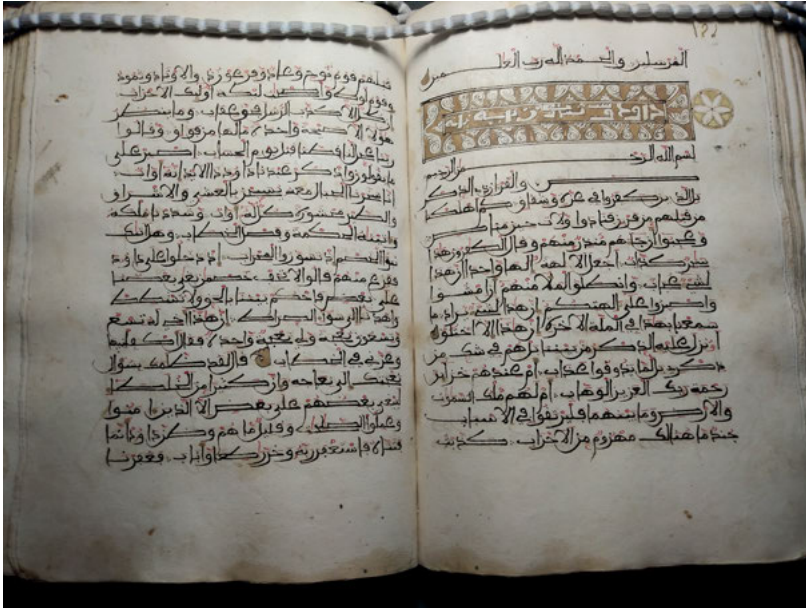 المرسلين والحمد لله رب العلمين
داود
بسم الله الرحمن الرحيم
ص والقرءان ذي الذكر
بل الذين كفروا في عزة وشقاق كم اهلكنا
من قبلهم من قرن فنادوا ولات حين مناص
وعجبوا ان جاءهم منذر منهم وقال الكفرون هذا
سحر كذاب اجعل الالهة الها واحدا ان هذا
لشيء عجاب وانطلق الملأ منهم ان امشوا
واصبروا على ءالهتكم ان هذا لشيء يراد ما
سمعنا بهذا في الملة الاخرة ان هذا الا اختلق
أنزل عليه الذكر من بيننا بل هم في شك من
ذكري بل لما يذوقوا عذاب ام عندهم خزائن
رحمة ربك العزيز الوهاب ام لهم ملك السموت
والارض وما بينهما فليرتقوا في الاسباب
جند ما هنالك مهزوم من الاحزاب كذبت
قبلهم قوم نوح وعاد وفرعون ذو الاوتاد وثمود
وقوم لوط واصحب لئكة اولئك الاحزاب
ان كل الا كذب الرسل فحق عقاب وما ينظر
هؤلاء الا صيحة وحدة ما لها من فواق وقالوا
ربنا عجل لنا قطنا قبل يوم الحساب اصبر على
ما يقولون واذكر عبدنا داود ذا الايد انه اواب
انا سخرنا الجبال معه يسبحن بالعشي والاشراق
والطير محشورة كل له اواب وشددنا ملكه
وءاتينه الحكمة وفصل الخطاب وهل اتيك
نبؤا الخصم اذ تسوروا المحراب اذ دخلوا على داود
ففزع منهم قالوا لا تخف خصمن بغى بعضنا
على بعض فاحكم بيننا بالحق ولا تشطط
واهدنا الى سواء الصراط ان هذا اخي له تسع
وتسعون نعجة ولي نعجة وحدة فقال اكفلنيها
وعزني في الخطاب قال لقد ظلمك بسؤال
نعجتك الى نعاجه وان كثيرا من الخلطاء
ليبغي بعضهم على بعض الا الذين ءامنوا
وعملوا الصلحت وقليل ما هم وظن داود انما
فتنه فاستغفر ربه وخر راكعا واناب فغفرنا